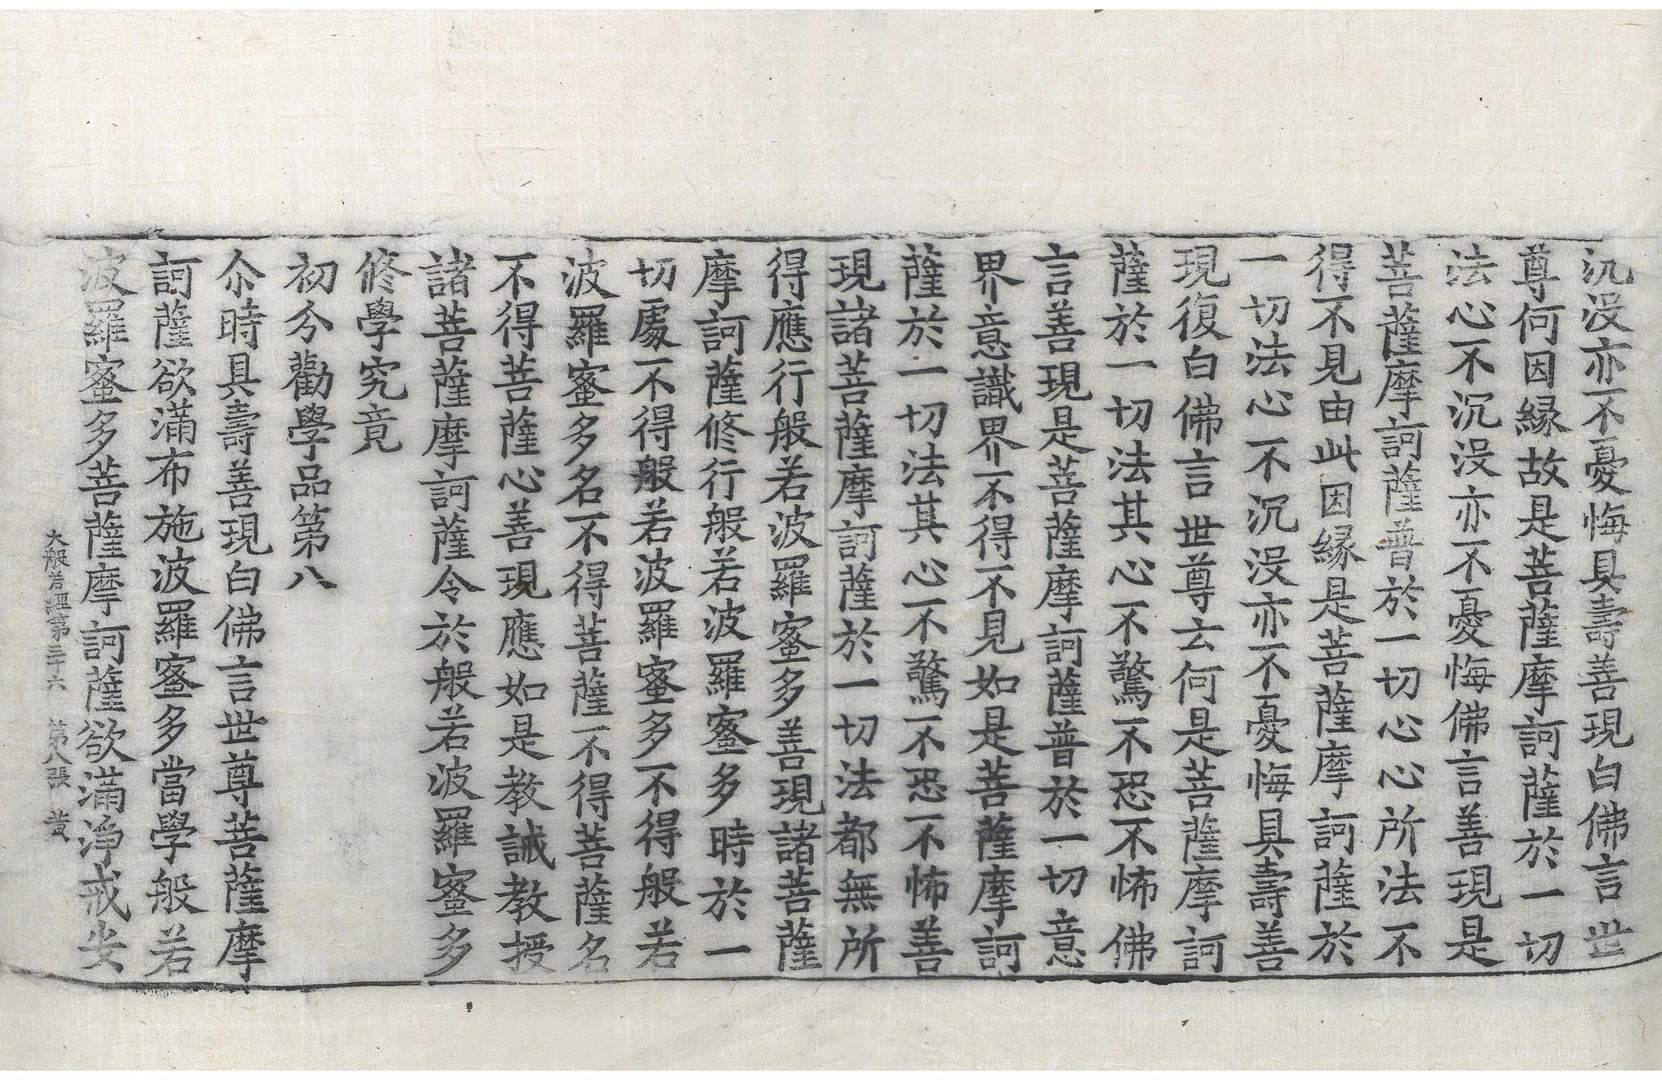 沉没亦不憂悔具壽善現白佛言世
尊何因緣故是菩薩摩訶薩於一切
法心不沉没亦不憂悔佛言善現是
菩薩摩訶薩普於一切心心所法不
得不見由此因緣是菩薩摩訶薩於
一切法心不沉没亦不憂悔具壽善
現復白佛言世尊云何是菩薩摩訶
薩於一切法其心不驚不恐不怖佛
言善現是菩薩摩訶薩普於一切意
界意識界不得不見如是菩薩摩訶
薩於一切法其心不驚不恐不怖善
現諸菩薩摩訶薩於一切法都無所
得應行般若波羅蜜多善現諸菩薩
摩訶薩修行般若波羅蜜多時於一
切處不得般若波羅蜜多不得般若
波羅蜜多名不得菩薩不得菩薩名
不得菩薩心善現應如是教誡教授
諸菩薩摩訶薩令於般若波羅蜜多
修學究竟
初分勸學品第八
尒時具壽善現白佛言世尊菩薩摩
訶薩欲滿布施波羅蜜多當學般若
波羅蜜多菩薩摩訶薩欲滿淨戒安
大般若經第三十六 第八張 黃